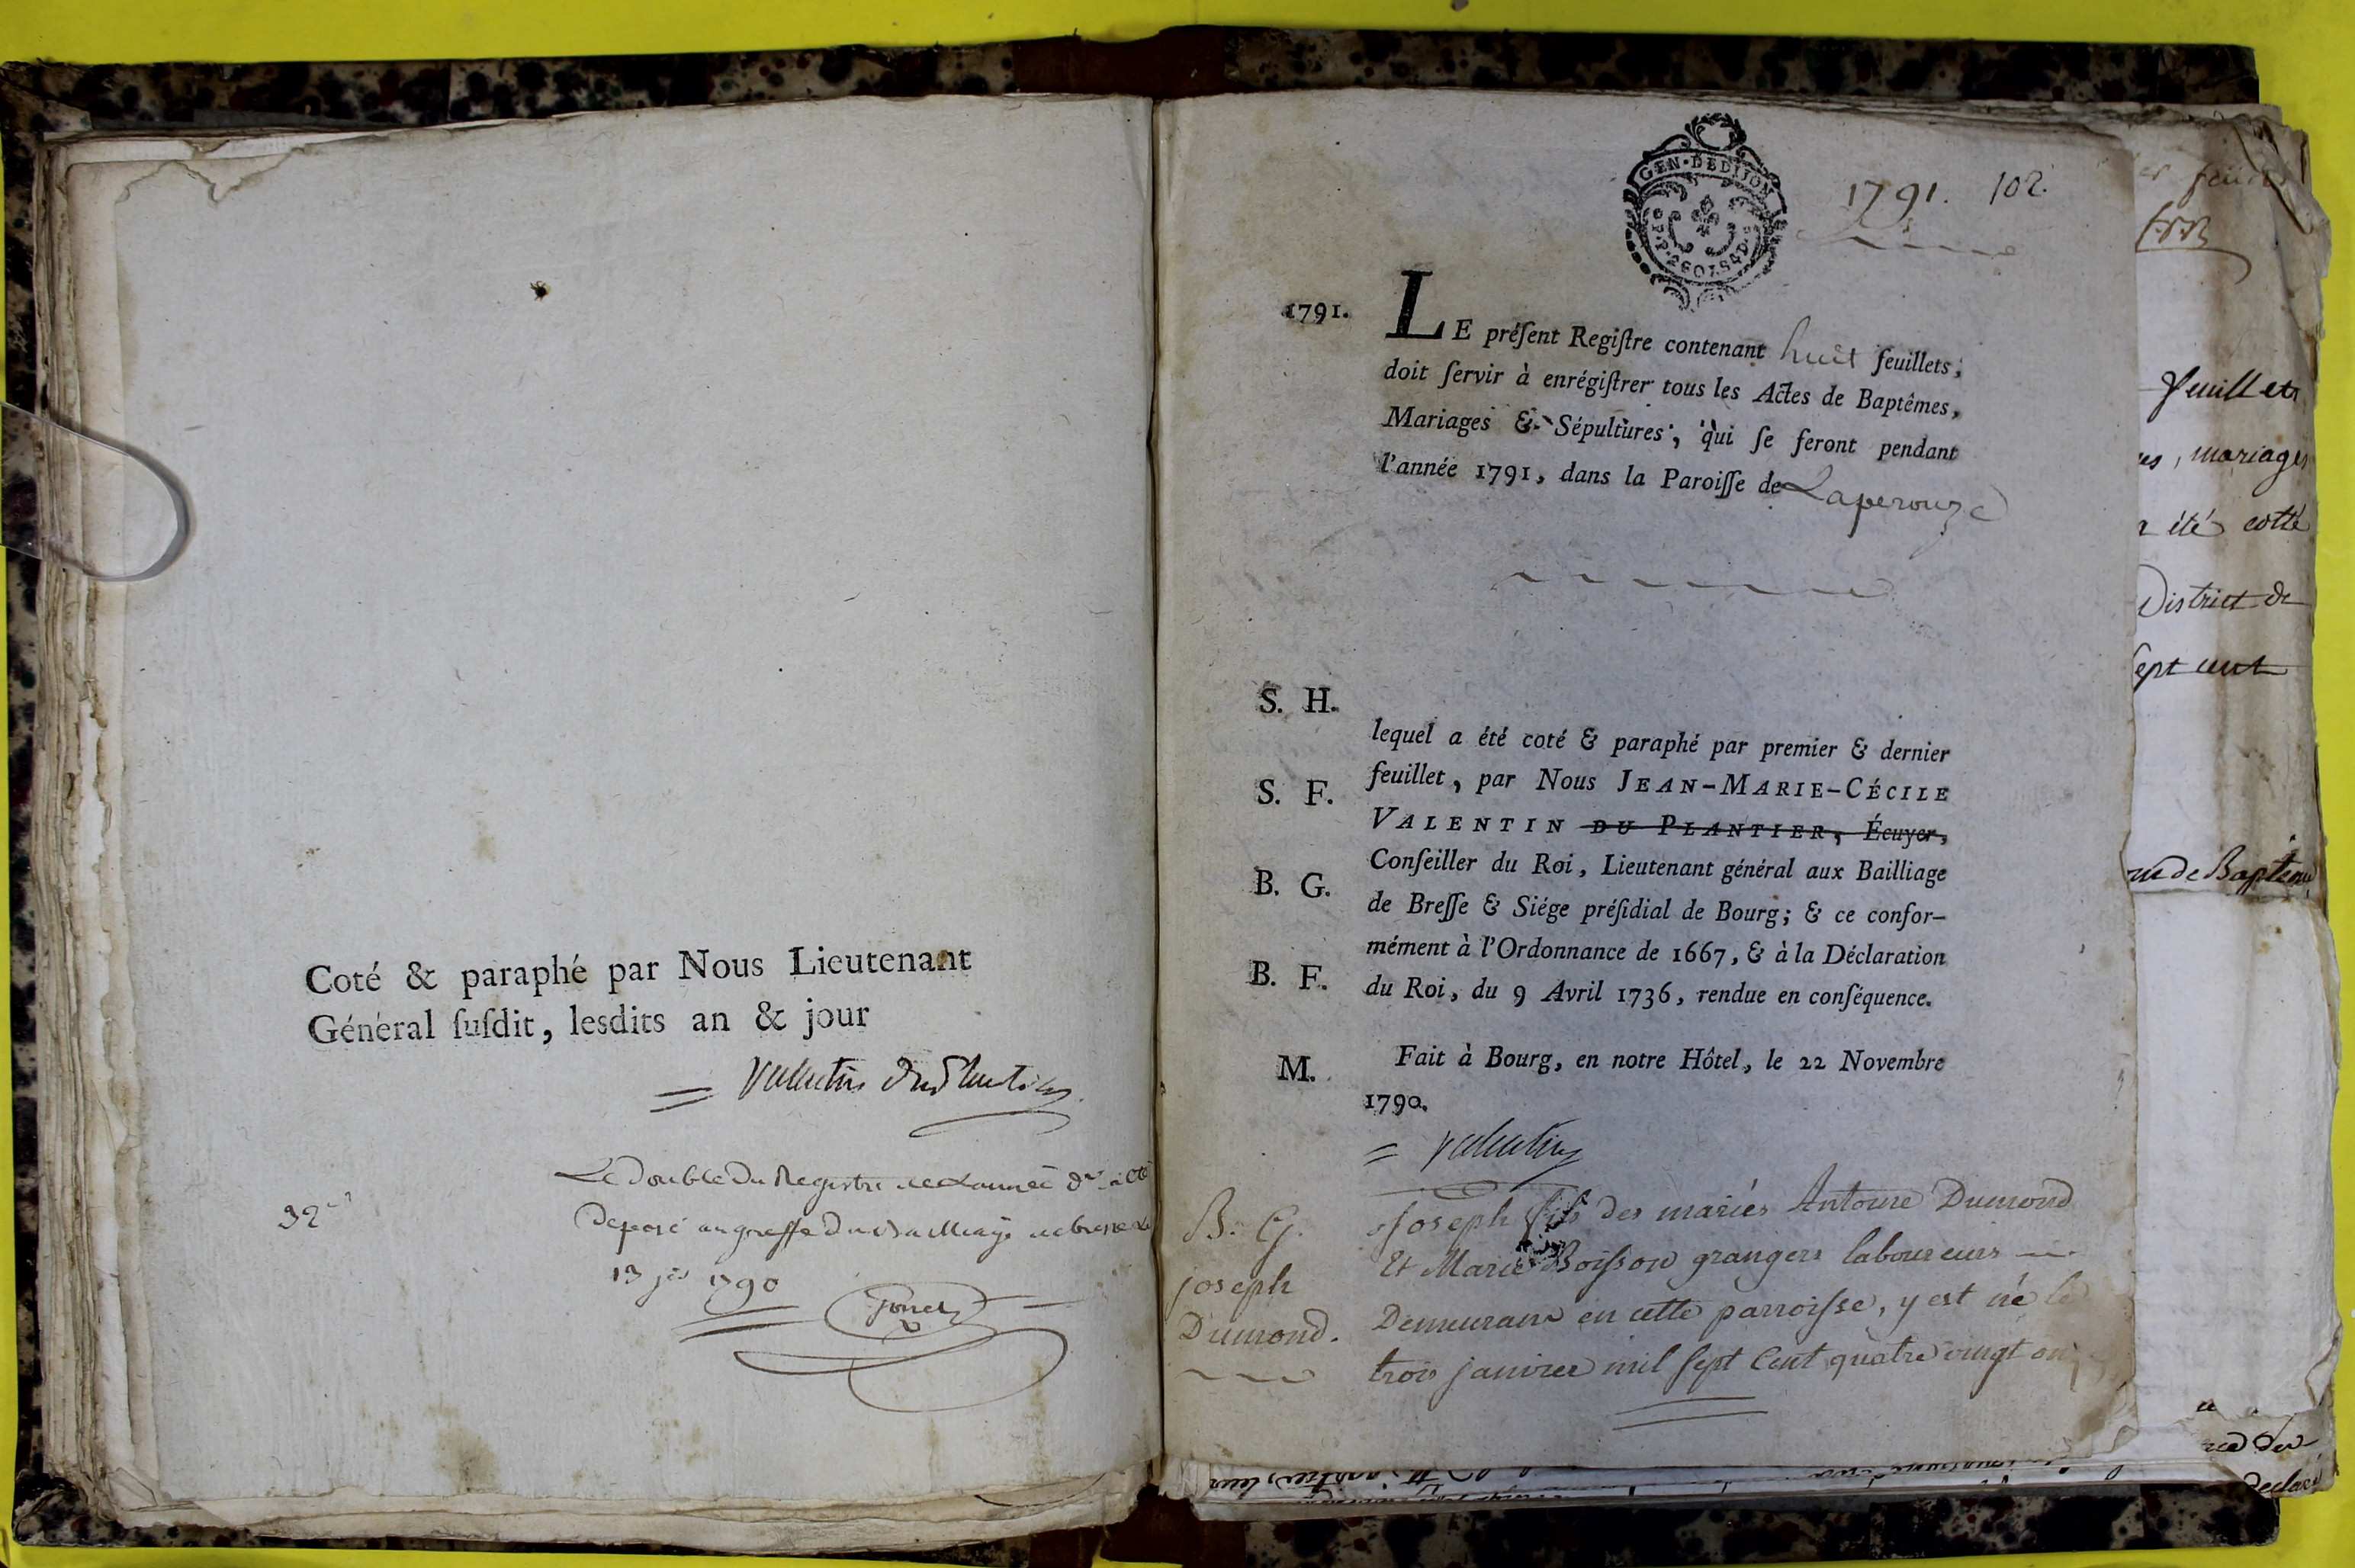 Coté & paraphé par Nous Lieutenant
Général ſuſdit, lesdits an & jour
= Valentin DuPlantier
Le double du Registre de L'année d.re a été
déposé au greffe du Bailliage de bresse le
13 1790
LE préſent Regiſtre contenant huit feuillets,
doit ſervir à enrégiſtrer tous les Actes de Baptêmes,
Mariages & Sépultures, qui ſe feront pendant
l'année 1791, dans la Paroiſſe de Laperouze
GEN·DEDIJON
1791. 102.
1791.
S. H.
lequel a été coté & paraphé par premier & dernier
feuillet, par Nous JEAN-MARIE-CÉCILE
S. F.
VALENTIN DU PLANTIER, Écuyer,
Conſeiller du Roi, Lieutenant général aux Bailliage
B. G.
de Breſſe & Siége préſidial de Bourg; & ce confor-
mément à l'Ordonnance de 1667, & à la Déclaration
B. F.
du Roi, du 9 Avril 1736, rendue en conſéquence.
M.
Fait à Bourg, en notre Hôtel, le 22 Novembre
1790.
= Valentin
B. G.
joseph
Dumond.
Joseph fils des mariés Antoine Dumond
Et Marie Boiſson grangers laboureurs
Demeurant en cette parroiſse, y est né le
trois janvier mil ſept Cent quatre vingt onz
feuillets
mariages
été cotté
District de
ſept cent
de Bapteme